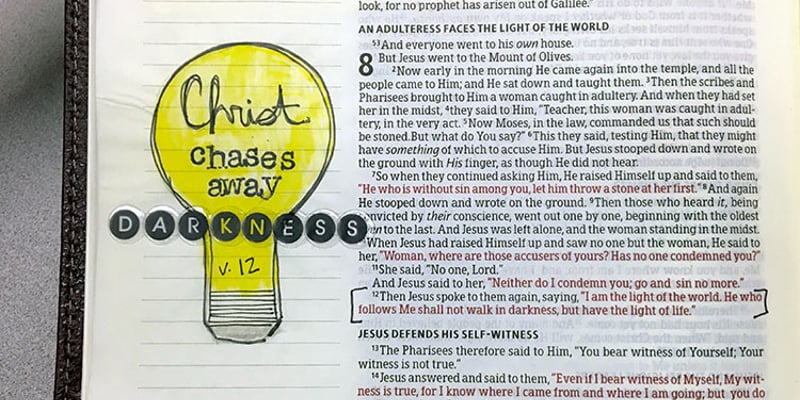 Christ
chases
away
DARKNESS
v. 12
look, for no prophet has arisen out of Galilee."
AN ADULTERESS FACES THE LIGHT OF THE WORLD
53And everyone went to his own house.
8 But Jesus went to the Mount of Olives.
2Now early in the morning He came again into the temple, and all the
people came to Him; and He sat down and taught them. 3Then the scribes and
Pharisees brought to Him a woman caught in adultery. And when they had set
her in the midst, 4they said to Him, "Teacher, this woman was caught in adul-
tery, in the very act. 5Now Moses, in the law, commanded us that such should
be stoned. But what do You say?" 6This they said, testing Him, that they might
have something of which to accuse Him. But Jesus stooped down and wrote on
the ground with His finger, as though He did not hear.
7So when they continued asking Him, He raised Himself up and said to them,
"He who is without sin among you, let him throw a stone at her first." 8And again
He stooped down and wrote on the ground. 9Then those who heard it, being
convicted by their conscience, went out one by one, beginning with the oldest
even to the last. And Jesus was left alone, and the woman standing in the midst.
When Jesus had raised Himself up and saw no one but the woman, He said to
her, "Woman, where are those accusers of yours? Has no one condemned you?"
11She said, "No one, Lord."
And Jesus said to her, "Neither do I condemn you; go and sin no more."
12Then Jesus spoke to them again, saying, "I am the light of the world. He who
follows Me shall not walk in darkness, but have the light of life."
JESUS DEFENDS HIS SELF-WITNESS
13The Pharisees therefore said to Him, "You bear witness of Yourself; Your
witness is not true."
14Jesus answered and said to them, "Even if I bear witness of Myself, My wit-
ness is true, for I know where I came from and where I am going; but you do